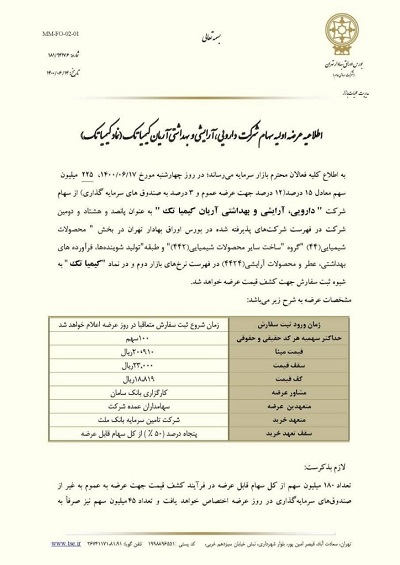 MM-FO-02-01
بسمه تعالی
شماره: ۱۸۱/۹۴۲۷۶
تاریخ: ۱۴۰۰/۰۶/۱۴
بورس اوراق بهادار تهران
(شرکت سهامی عام)
مدیریت عملیات بازار
اطلاعیه عرضه اولیه سهام شرکت دارویی، آرایشی و بهداشتی آریان کیمیا تک (نماد کیمیاتک)
به اطلاع کلیه فعالان محترم بازار سرمایه می‌رساند؛ در روز چهارشنبه مورخ ۱۴۰۰/۰۶/۱۷، ۲۲۵ میلیون
سهم معادل ۱۵ درصد(۱۲ درصد جهت عرضه عموم و ۳ درصد به صندوق های سرمایه گذاری) از سهام
شرکت " دارویی، آرایشی و بهداشتی آریان کیمیا تک " به عنوان پانصد و هشتاد و دومین
شرکت در فهرست شرکت‌های پذیرفته شده در بورس اوراق بهادار تهران در بخش " محصولات
شیمیایی(۴۴) "گروه "ساخت سایر محصولات شیمیایی(۴۴۲)" و طبقه"تولید شوینده‌ها، فرآورده های
بهداشتی، عطر و محصولات آرایشی(۴۴۲۴) در فهرست نرخ‌های بازار دوم و در نماد "کیمیا تک " به
شیوه ثبت سفارش جهت کشف قیمت عرضه خواهد شد.
مشخصات عرضه به شرح زیر می‌باشد:
زمان ورود ثبت سفارش زمان شروع ثبت سفارش متعاقبا در روز عرضه اعلام خواهد شد
حداکثر سهمیه هر کد حقیقی و حقوقی ۱۰۰سهم
قیمت مبنا ۲۰۰۹۱۰ریال
سقف قیمت ۲۳,۰۰۰ریال
کف قیمت ۱۸،۸۱۹ریال
مشاور عرضه کارگزاری بانک سامان
متعهدین عرضه سهامداران عمده شرکت
متعهد خرید شرکت تامین سرمایه بانک ملت
سقف تعهد خرید پنجاه درصد (۵۰ ٪) از کل سهام قابل عرضه
لازم بذکرست:
تعداد ۱۸۰ میلیون سهم از کل سهام قابل عرضه در فرآیند کشف قیمت جهت عرضه به عموم به غیر از
صندوق‌های سرمایه‌گذاری در روز عرضه اختصاص خواهد یافت و تعداد ۴۵میلیون سهم نیز صرفاً به
تهران، سعادت آباد، قیصر امین پور، بلوار شهرداری، نبش خیابان سیزدهم غربی، کد پستی: ۱۹۹۸۹۹۶۵۵۱ تلفن گویا: ۹۱-۲۶۷۴۱۱۷۱،۸۱ www.tse.ir